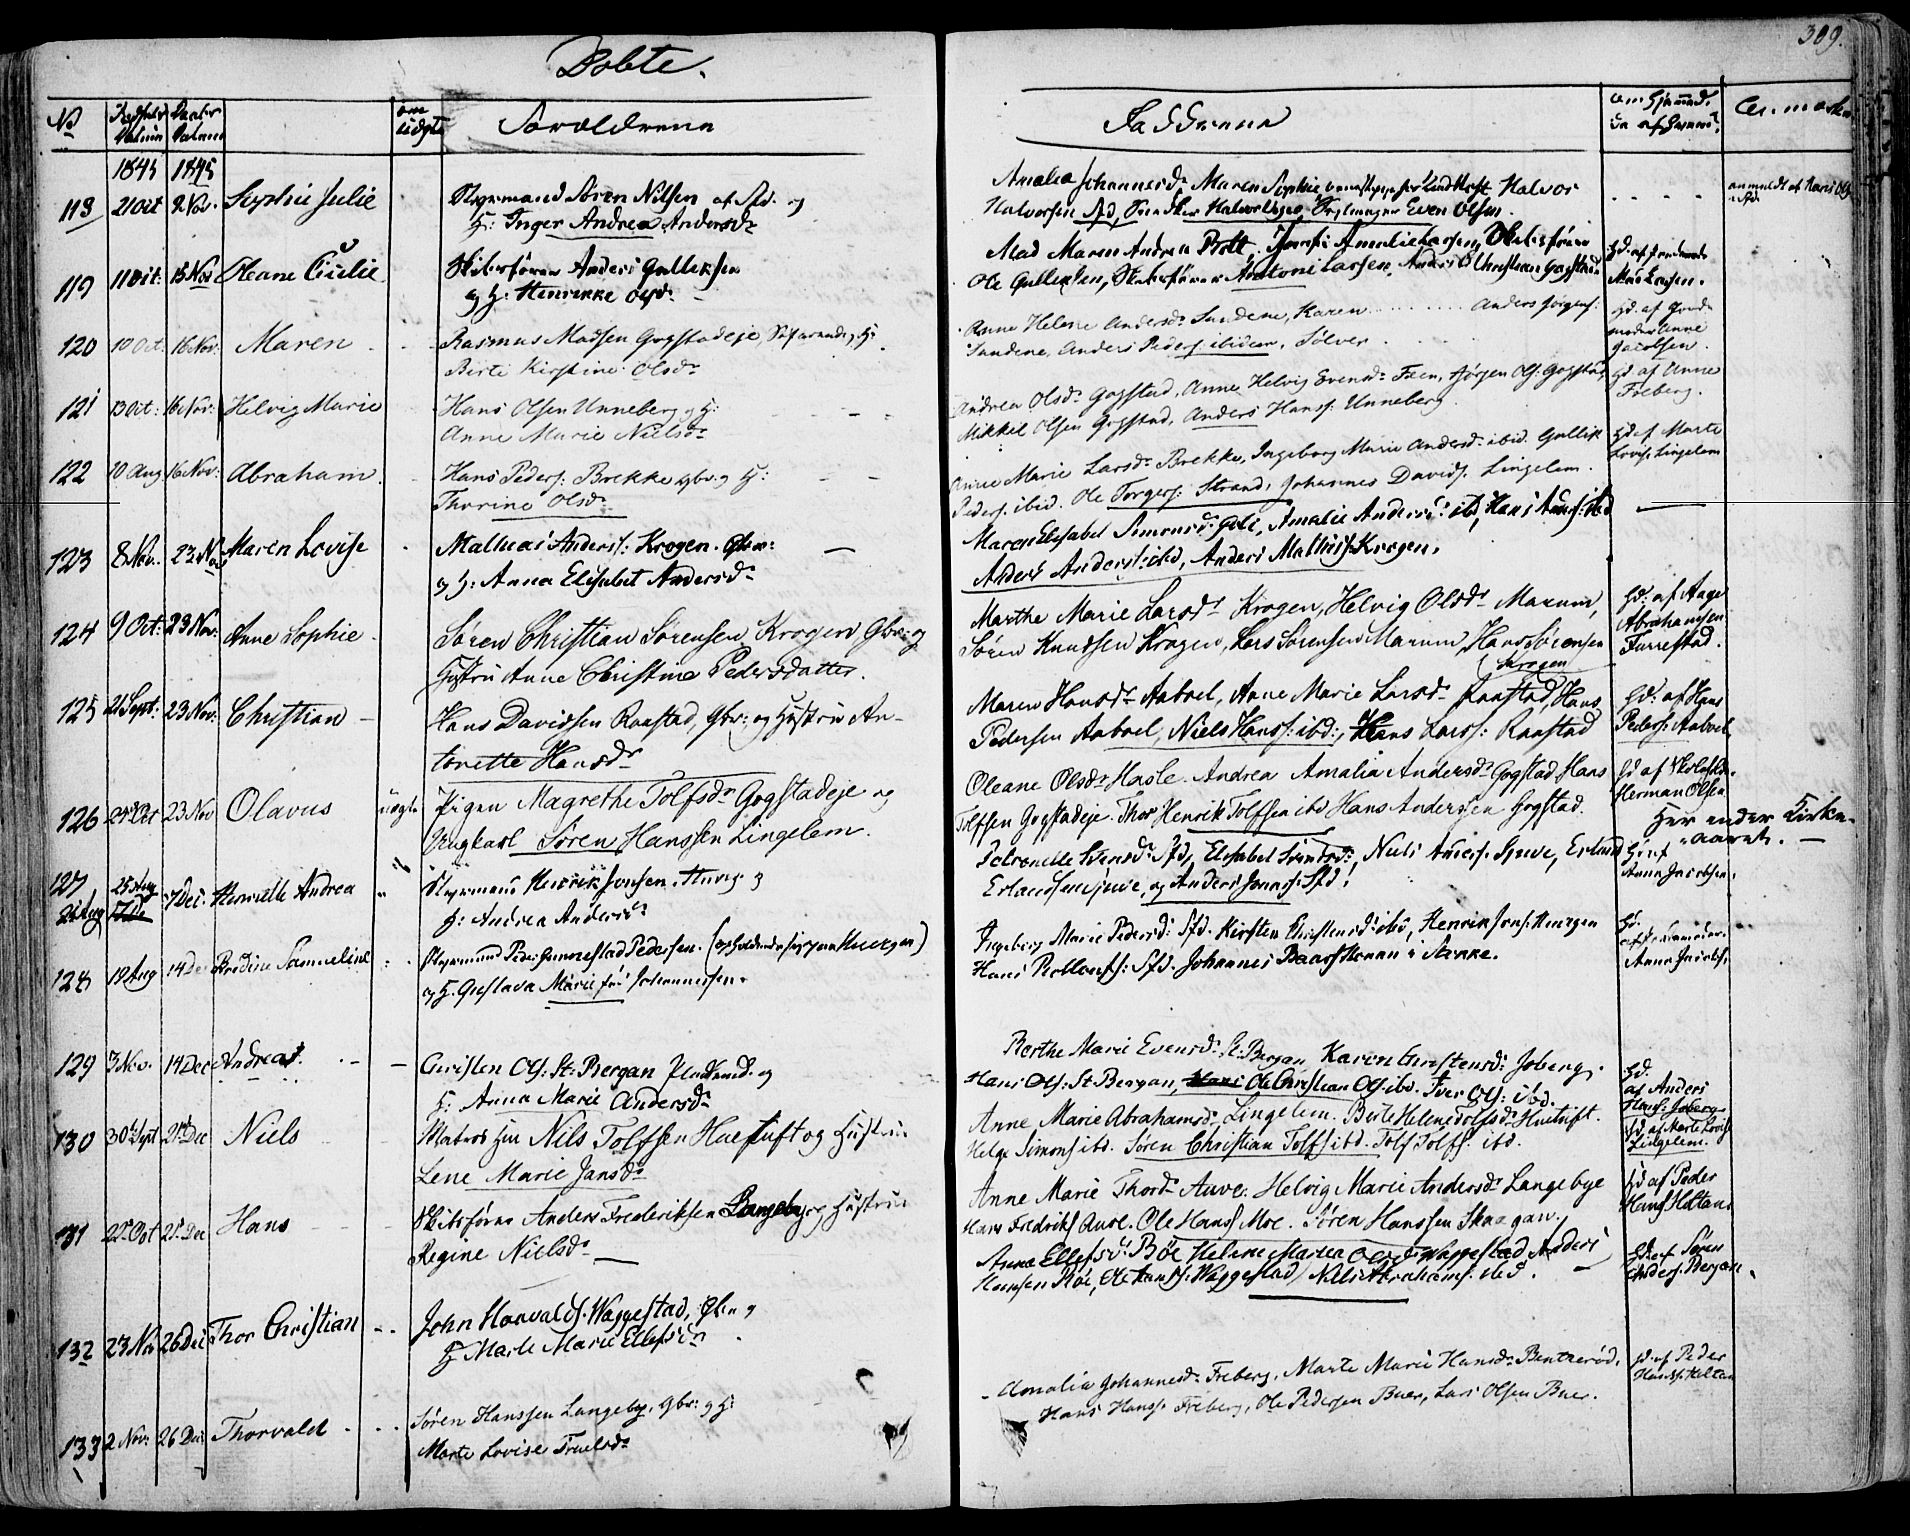 309.
Döbte.
No Fødsels Datum Daabs Datum om uægte Forældrene Fadderne om hjemmed. da af hvem Anmærkn
1845 1845
118 21 Oct 2 Nov. Sophie Julie Styrmand Søren Nilsen af Sfd. og
H: Inger Andrea Andersdr
Amalia Johannesdr Maren Sophie Halvor
Halvorsen Sfd, Even Olsen.
anmeldt af Hans Ols
119 11 Oct: 15 Nov Oleane Cicilie Skibsfører Anders Gulliksen
og H: Henrikke Olsdr
Mad Maren Andrea Bull, Jomfr Amalie Larsen, Skibsfører
Ole Gulliksen, Skibsfører Antoni Larsen, Anders Christian Gogstad
Hd: af Jordmoder
Mad Larsen.
120 10 Oct. 16 Nov. Maren Rasmus Madsen Gogstadeje, Søfarende, og H:
Birte Kirstine Olsdr
Anne Helene Andersdr Sundene, Karen Anders Jørgens:
Sundene, Anders Peders: ibidem, Sølver
Hd. af Jord-
moder Anne
Jacobsen.
121 13 Oct: 16 Nov: Helvig Marie Hans Olsen Unneberg og H:
Anne Marie Nielsdr
Andrea Olsdr Gogstad, Anne Helvig Evensdr Feen, Jørgen Ols: Gogstad,
Mikkel Olsen Gogstad, Anders Hanss: Unneberg
Hd af Anne
Freberg.
122 10 Aug 16 Nov: Abraham Hans Peders: Brekke gbr. og H:
Thorine Olsdr
Anne Marie Larsdr Brekke, Ingeborg Marie Andersdr ibid. Gullik
Peders. ibid. Ole Torgers: Strand, Johannes Davids. Lingelem.
Hd af Marte
Lovise Lingelem
123 8 Nov. 23 Nov Maren Lovise Mathias Anderss: Krogen. Gbr:
og H: Anna Elisabet Andersdr
Maren Elisabet Simonsdr Anders Amalie Andersdr ibd, Hans Anders: ibd
Anders Anderss: ibd, Anders Mathiss: Krogen.
124 9 Oct: 23 Nov: Anne Sophie Søren Christian Sørensen Krogen Gbr: og
Hustru Anne Christine Pedersdatter.
Marthe Marie Larsdr Krogen, Helvig Olsdr Marum,
Søren Knudsen Krogen, Lars Sørensen Marum, Hans Sørensen
Krogen
Hd: af Aage
Abrahamsen
Furrestad.
125 21 Sept: 23 Nov: Christian Hans Davidsen Raastad, Gbr: og Hustru An-
tonette Hansdr
Maren Hansdr Aabøl, Anne Marie Larsdr Raastad, Hans
Pedersen Aabøl, Niels Hanss: ibd:, Hans Larss: Raastad
Hd: af Hans
Peders: Aabøl
126 24 Oct 23 Nov Olavus uægte Pigen Magrethe Tolfsdr Gogstadeje og
Ungkarl Søren Hanssen Lingelem.
Oleane Olsdr Hasle. Andrea Amalia Andersdr Gogstad, Hans
Tolfsen Gogstadeje. Thor Henrik Tolfsen ibd Hans Anderssen Gogstad.
Hd af Skolehlr.
Herman Olsen
Her ender Kirke-
aaret. —
127 25 Aug 7 Dec. Henriette Andrea Styrmand Henrik Jonsen. og
H: Andrea Andersdr
Petronelle Svensdr Sfd, Elisabet ibd, Niels Anders. Erland
Erlandsen og Anders Jonass: Sfd.
Hd af
Anne Jacobsen
128 19 Aug 14 Dec Bredine Samueline Styrmand Peder Gunnestad Pedersen.
og H. Gustava Marie Johannessen.
Ingeborg Marie Pedersdr Sfd. Kirsten Christensdr ibd, Henrik Jons:
Hans Sfd. Johannes
Hd:
af Jordmoder
Anne Jacobs.
129 3 Nov. 14 Dec Andreas Christen Ols: St: Bergan og
H: Anna Marie Andersdr
Berthe Marie Evensdr St: Bergan Karen Christensdr Joberg.
Hans Ols: St. Bergan, Ole Christian Ols. ibd. Iver Ols: ibd.
Hd.
af Anders
Hanss: Joberg
130 30 Sept 21 Dec Niels Matros Nils Tolfsen Huetuft og Hustru
Lene Marie Jansdr
Anne Marie Abrahamsdr Lingelem. Birte Helene Tolfsdr Huetuft.
Helge Simons ibd. Søren Christian Tolfs ibd. Tolf Tolfs. ibd.
Hd af Marte Lovise
Lingelem.
131 22 Oct 25 Dec Hans Skibsfører Anders Frederiksen Langeby og Hustru
Regine Nielsdr —
Anne Marie Thordr Auve. Helvig Marie Andersdr Langebye
Hans Fredriks Auve. Ole Hanss Moe. Søren Hanssen Skaagan.
Hd af Peder
Hans Heltan
132 23 Nov 26 Dec Thor Christian John Harvalds. Waggestad, Gbr. og
H Marte Marie Ellefsdr
Anne Ellefsdr Bøe, Helene Maria Olsdr Waggestad Anders
Hansen Bøe, Ole Hans: Waggestad, Niels Abrahams: ibd.
Hd. af Søren
Anders: Bergan.
133 2 Nov: 26 Dec Thorvald Søren Hanssen Langeby, Gbr: og H:
Marte Lovise Truelsdr
Amalia Johannesdr Freberg, Marte Marie Hansdr Bentserød,
Hans Hanss Freberg, Ole Pedersen Buer, Lars Olsen Buer.
Hd. af Peder
Hanss: Heltan